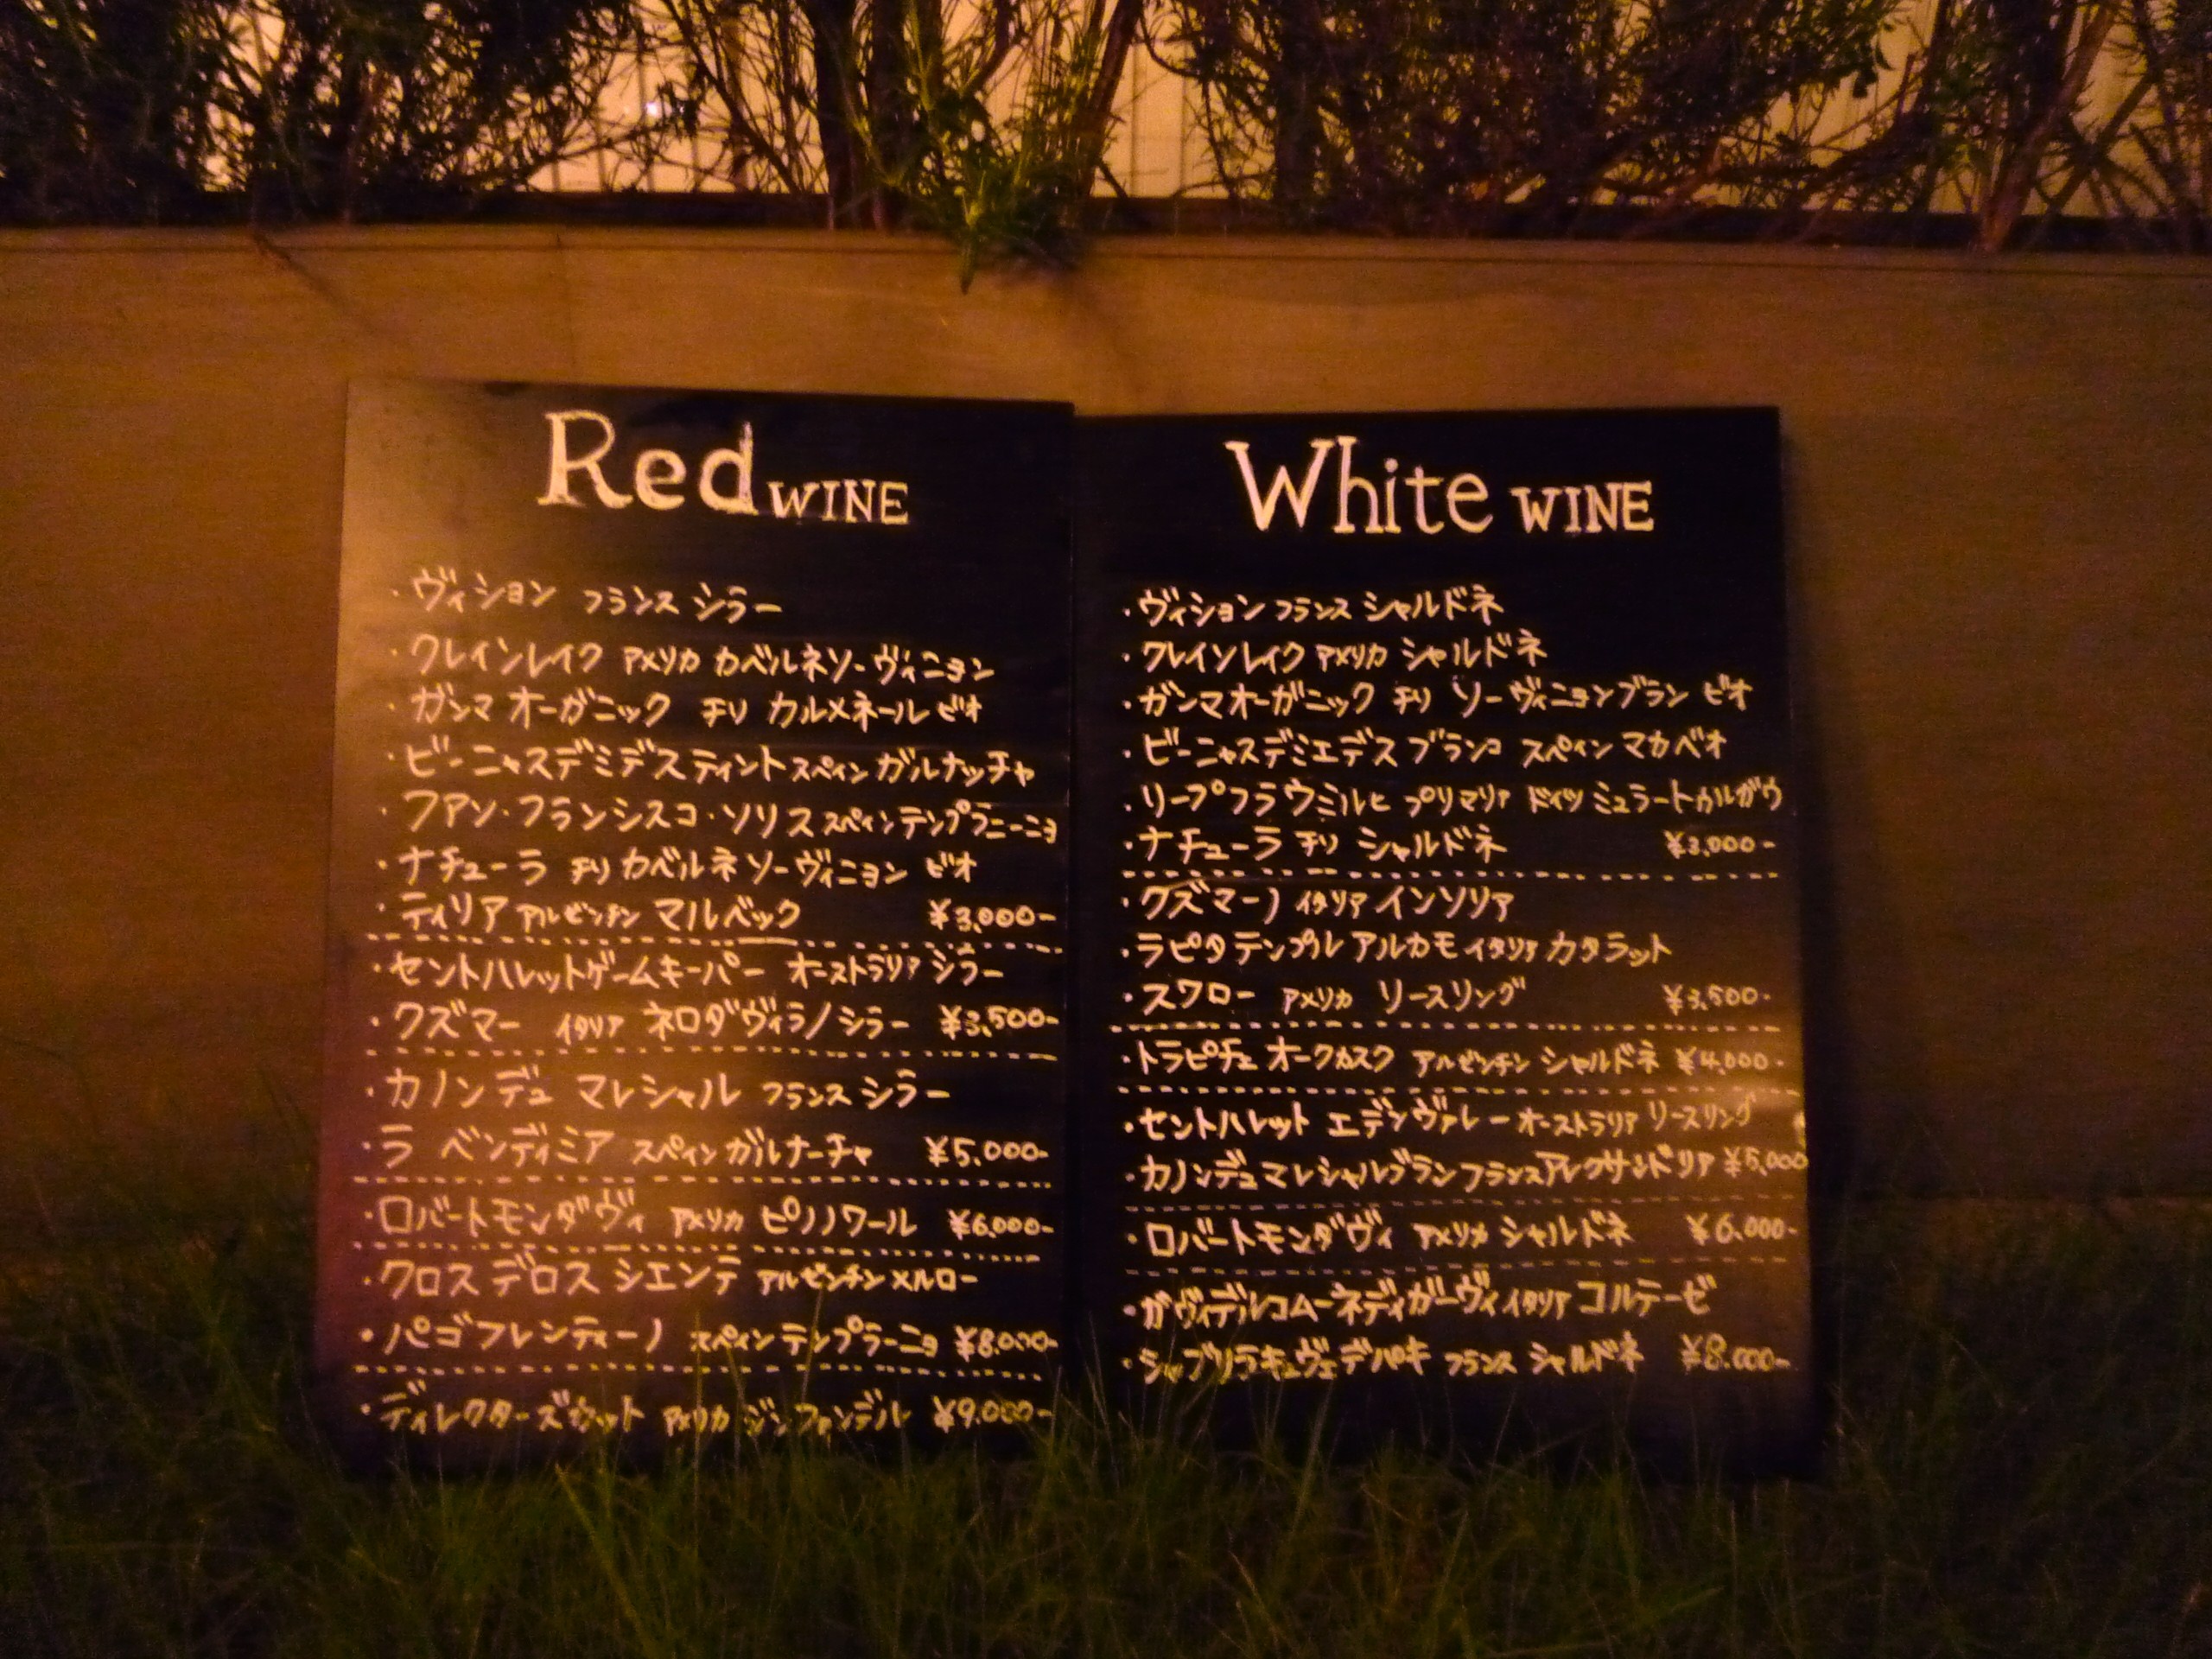 Red WINE
・ヴィション フランス シラー
・クレインレイク アメリカ カベルネソーヴィニョン
・ガンマ オーガニック チリ カルメネール ビオ
・ビーニャスデミデス ティント スペイン ガルナッチャ
・フアン・フランシスコ・ソリス スペイン テンプラニーニョ
・ナチューラ チリ カベルネ ソーヴィニョン ビオ
・ティリア アルゼンチン マルベック ¥3,000-
・セントハレットゲームキーパー オーストラリア シラー
・クズマー イタリア ネロダヴィラノ シラー ¥3,500-
・カノンデュ マレシャル フランス シラー
・ラ ベンディミア スペイン ガルナーチャ ¥5,000-
・ロバートモンダヴィ アメリカ ピノノワール ¥6,000-
・クロス デロス シエンテ アルゼンチン メルロー
・パゴフレンティーノ スペイン テンプラーニョ ¥8,000-
・ディレクターズカット アメリカ ジンファンデル ¥9,000-
White WINE
・ヴィション フランス シャルドネ
・クレインレイク アメリカ シャルドネ
・ガンマオーガニック チリ ソーヴィニョンブラン ビオ
・ビーニャスデミエデス ブランコ スペイン マカベオ
・リープフラウミルヒ プリマリア ドイツ ミュラートゥルガウ
・ナチューラ チリ シャルドネ ¥3,000-
・クズマーノ イタリア インソリア
・ラピタ テンプル アルカモ イタリア カタラット
・スワロー アメリカ リースリング ¥3,500-
・トラピチェ オークカスク アルゼンチン シャルドネ ¥4,000-
・セントハレット エデンヴァレー オーストラリア リースリング
・カノンデュマレシャルブラン フランス アレクサンドリア ¥5,000
・ロバートモンダヴィ アメリカ シャルドネ ¥6,000-
・ガヴィデルコムーネディガーヴィ イタリア コルテーゼ
・シャブリラキュヴェデパキ フランス シャルドネ ¥8,000-